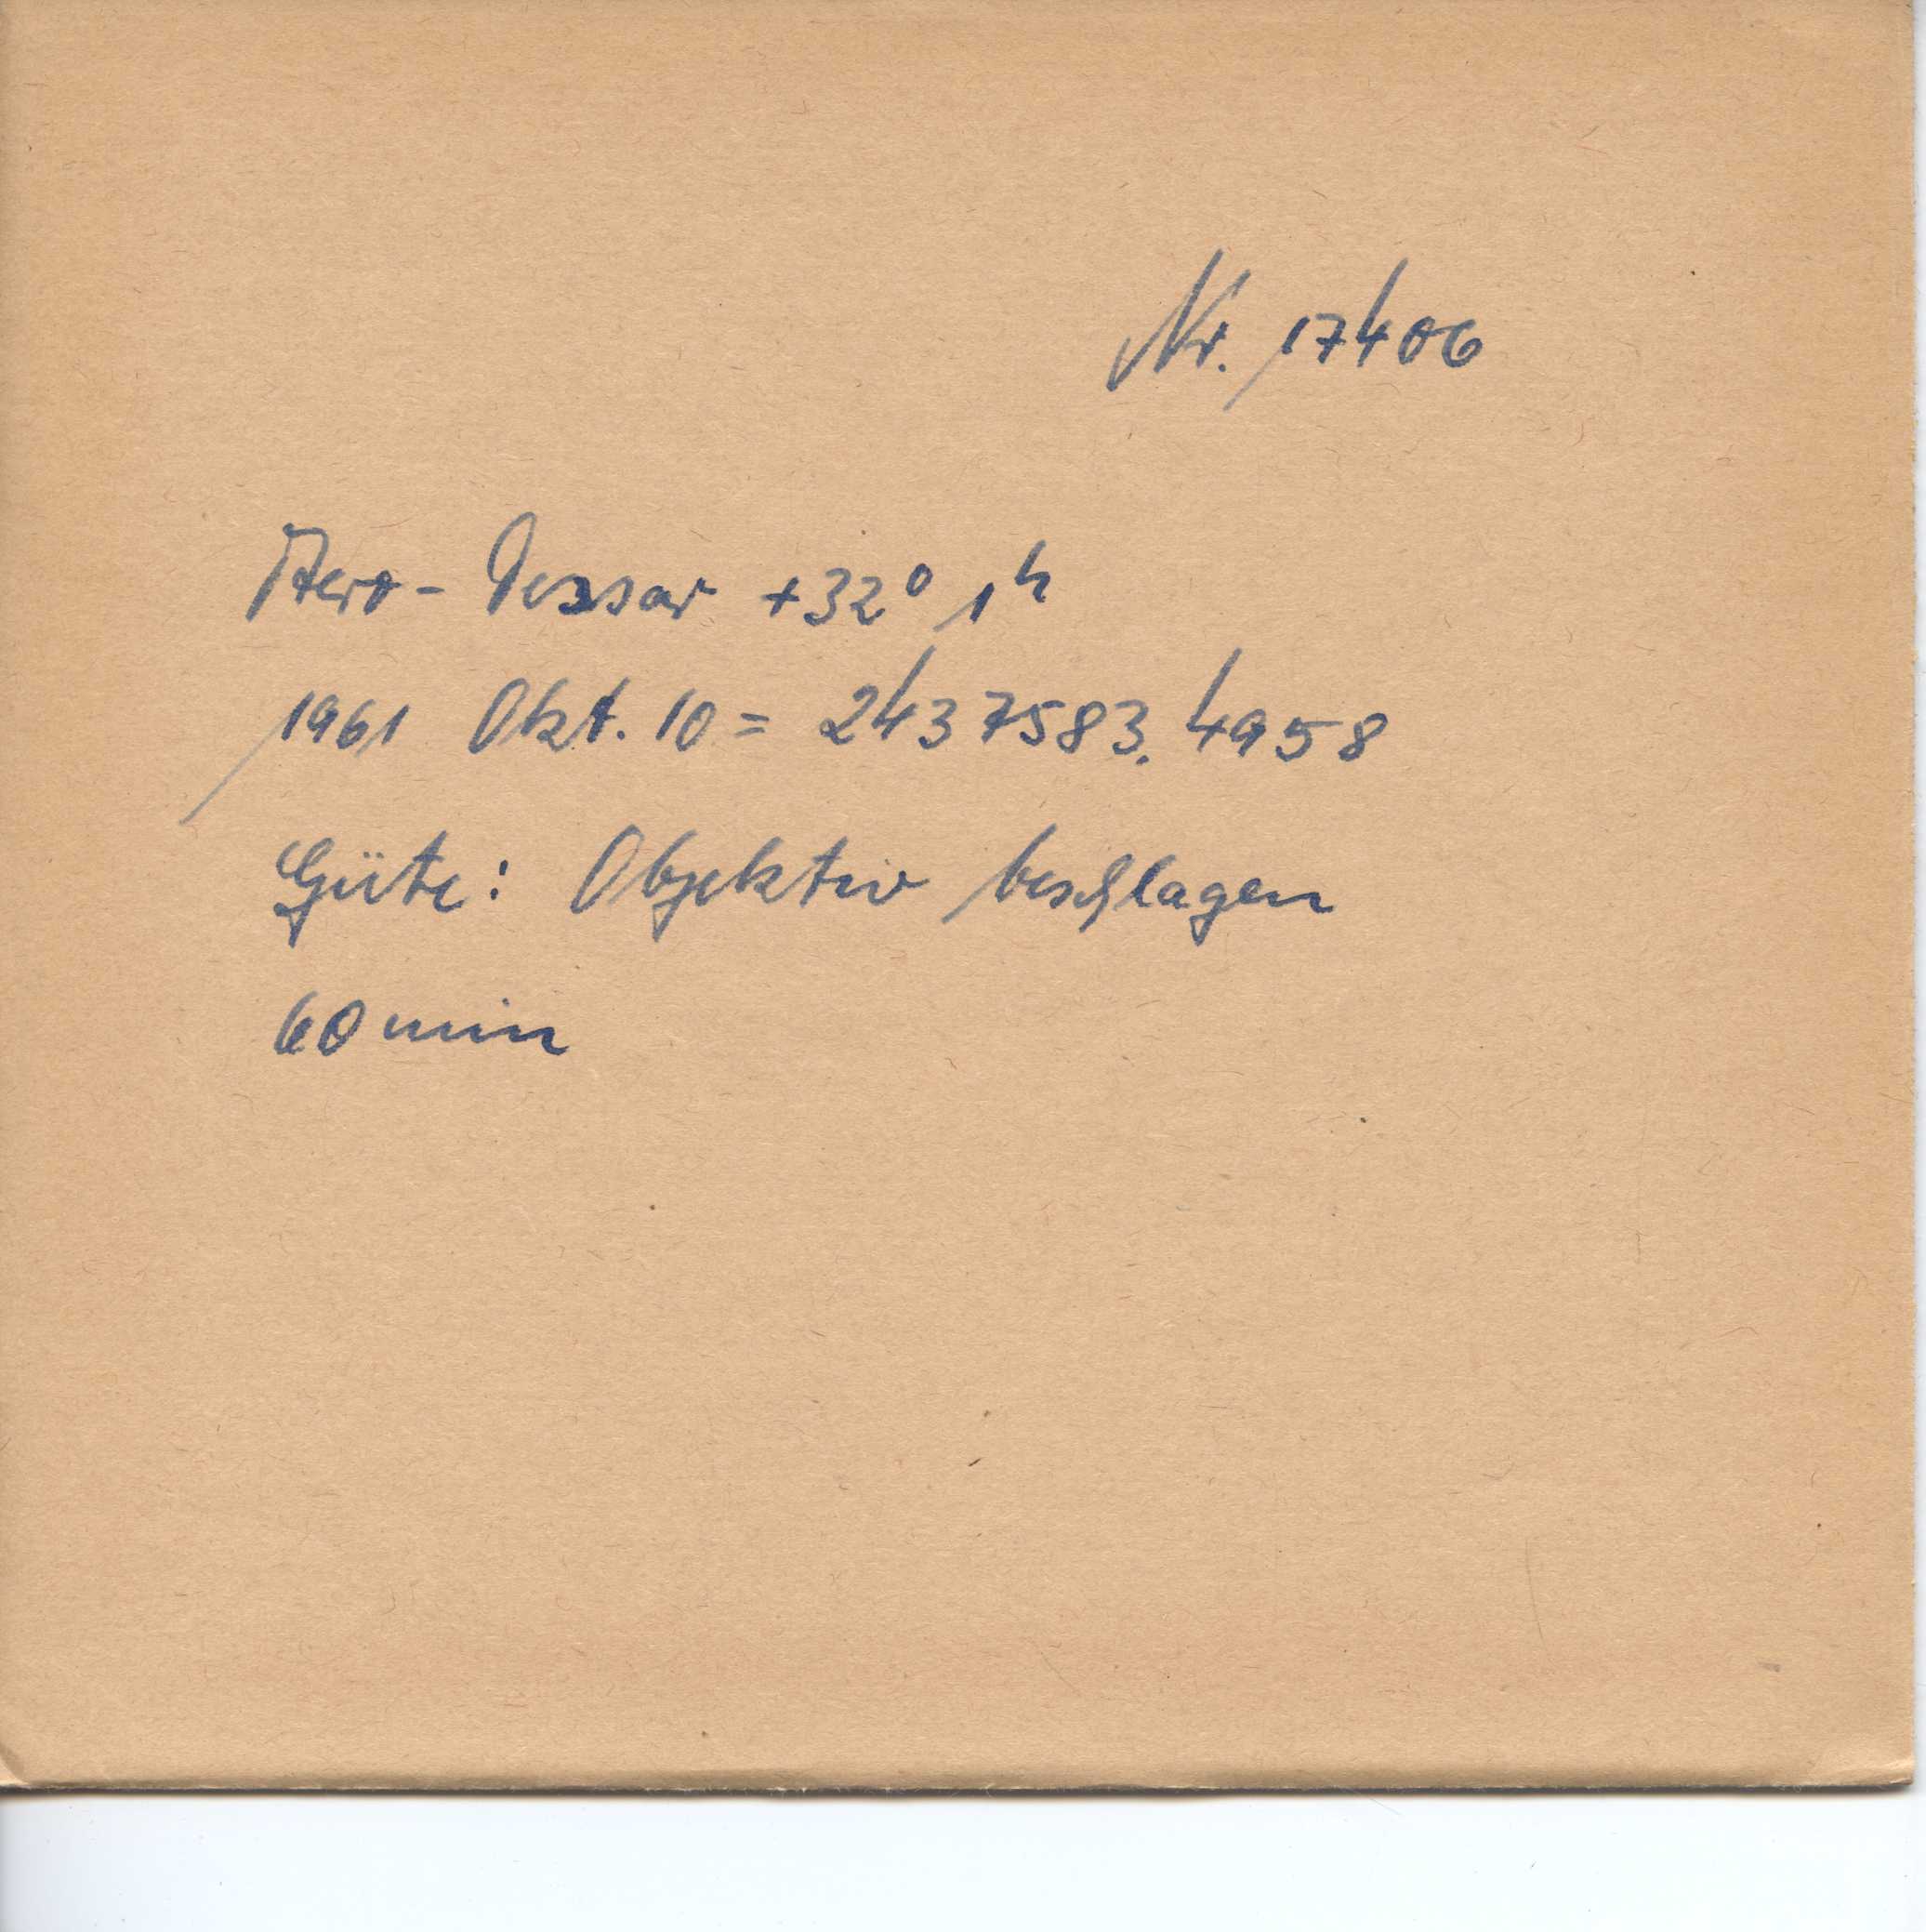 Nr. 17406
Aero-Tessar +32° 1ʰ
1961 Okt. 10 = 2437583.4958
Güte: Objektiv beschlagen
60 min